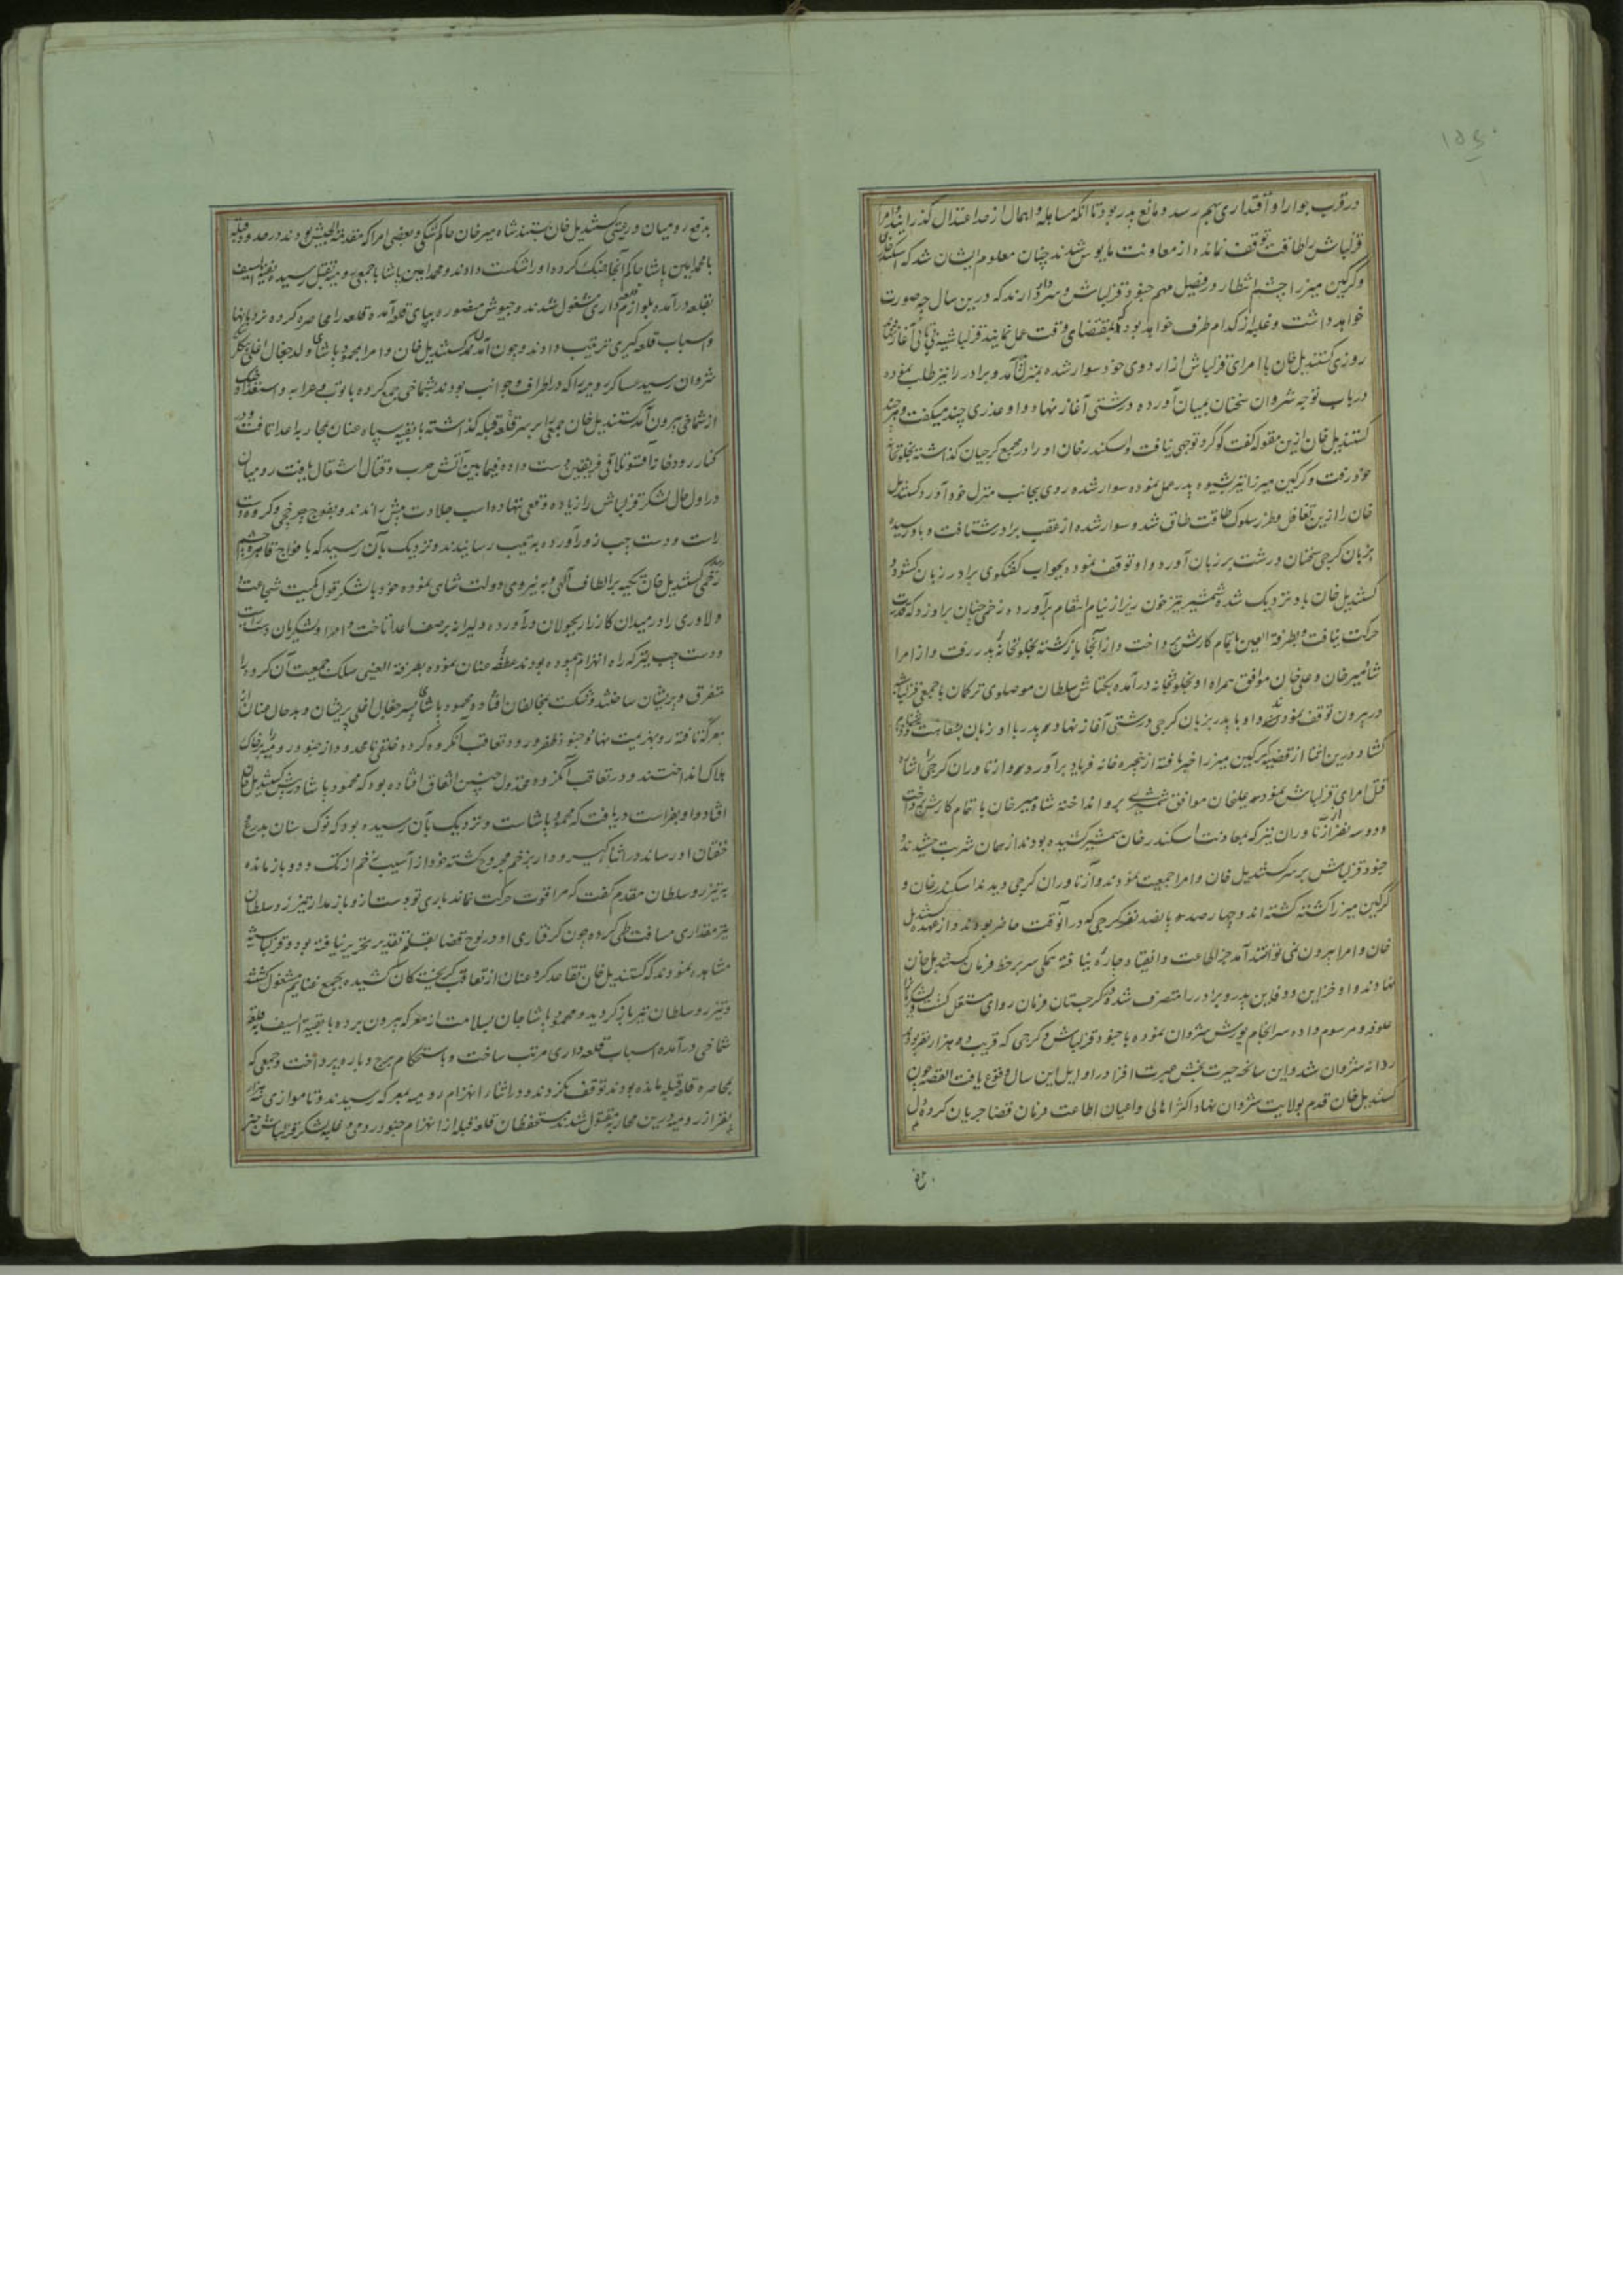 ۱۵۴۰
در قرب جوار او اقتداری بهم رسد و مانع پدر بود تا آنکه مساهله و اهمال از حد اعتدال گذرانید و امرا
قزلباش را طاقت توقف نمانده از معاونت مایوس شدند چنان معلوم ایشان شد که اسکندر خان
و گرگین میرزا چشم انتظار در فیصل مهم جنود قزلباش و سردار دارند که درین سال چه صورت
خواهد داشت و غلبه از کدام طرف خواهد بود که بمقتضای وقت عمل نمایند قزلباشیه
روزی کستندیل خان با امرای قزلباش از اردوی خود سوار شده بمنزل آمد و برادر را نیز طلب نموده
در باب توجه شروان سخنان بمیان آورده درشتی آغاز نهاد و او عذری چند میگفت و هر چند
کستندیل خان ازین مقوله گفت‌وگو کرد توجهی نیافت و اسکندر خان او را در مجمع گرجیان گذاشته بخلوتخانه
خود رفت و گرگین میرزا نیز بشیوه پدر عمل نموده سوار شده روی بجانب منزل خود آورد کستندیل
خان را ازین تغافل و طرز سلوک طاقت طاق شد و سوار شده از عقب برادر شتافت و باو رسیده
بزبان گرجی سخنان درشت بر زبان آورد و او توقف نموده بجواب گفتگوی برادر زبان گشود و
کستندیل خان باو نزدیک شده شمشیر تیز خون ریز از نیام انتقام برآورده زخمی چنان بر او زد که قدرت
حرکت نیافت و بطرفة العین باتمام کارش پرداخت و از آنجا بازگشته بخلوتخانه پدر رفت و از امرا
شاهمیر خان و علی خان موافق همراه او بخلوتخانه درآمده بکتاش سلطان موصلوی ترکمان با جمعی قزلباش
در بیرون توقف نمودند و او با پدر بزبان گرجی درشتی آغاز نهاد و پدر با او زبان بشفاعت
گشاد درین اثنا از قضیه گرگین میرزا خبر یافته از پنجره خانه فریاد برآورد و ازناوران گرجی را اشاره
قتل امرای قزلباش نمود علیخان موافق شمشیری برو انداخته شاهمیر خان باتمام کارش پرداخت
و دو سه نفر ازناوران نیز که بمعاونت اسکندر خان شمشیر کشیده بودند از همان شربت چشیدند و
جنود قزلباش بر سر کستندیل خان و امرا جمعیت نمودند و ازناوران گرجی دیدند اسکندر خان و
گرگین میرزا کشته گشته‌اند و چهار صد پانصد نفر گرجی که در آنوقت حاضر بودند و از عهده کستندیل
خان و امرا بیرون نمی‌توانستند آمد جز اطاعت و انقیاد چاره نیافته همگی سر بر خط فرمان کستندیل خان
نهادند و او خزاین و دفاین پدر و برادر را متصرف شده در گرجستان فرمان روای مستقل گشت و لشکریان را
علوفه و مرسوم داده سرانجام یورش شروان نموده با جنود قزلباش و گرجی که قریب ده هزار نفر بودند
روانه شروان شد و این سانحه حیرت بخش عبرت افزا در اوایل این سال وقوع یافت القصه چون
کستندیل خان قدم بولایت شروان نهاد اکثر اهالی و اعیان اطاعت فرمان قضا جریان کرده دل
بدفع رومیان و رعیتی کستندیل خان بستند شاه میر خان حاکم شکی و بعضی امرا که مقدمة الجیش بودند در حدود قبله
با محمد امین پاشا حاکم آنجا جنگ کرده او را شکست دادند و محمد امین پاشا با جمعی رومیه بقتل رسید بقیة السیف
بقلعه درآمده بلوازم قلعه داری مشغول شدند و جیوش منصوره بپای قلعه آمده قلعه را محاصره کرده نردبانها
و اسباب قلعه گیری ترتیب دادند و چون آمدن کستندیل خان و امرا بمحمود پاشای ولد جغال اغلی بیگلربیگی
شروان رسید عساکر رومیه را که در اطراف و جوانب بودند بشماخی جمع کرده با توپ و عرابه و استعداد جنگ
از شماخی بیرون آمد کستندیل خان جمعی را بر سر قلعه قبله گذاشته با بقیه سپاه عنان بمحاربه اعدا تافت و در
کنار رودخانه اقسو تلاقی فریقین دست داده فیمابین آتش حرب و قتال اشتعال یافت رومیان
در اول حال لشکر قزلباش را زیاده وقعی ننهاده اسب جلادت پیش راندند و بفوج چرخچی و گروه دست
راست و دست چپ زور آورده به تیپ رسانیدند و نزدیک بآن رسید که بافواج قاهره چشم
زخمی رسد کستندیل خان تکیه بر الطاف الهی و به نیروی دولت شاهی نموده خود با لشکر قول کمیت شجاعت و
دلاوری را در میدان کارزار بجولان درآورده دلیرانه بر صف اعدا تاخت و امرا و لشکریان دست راست
و دست چپ نیز که راه انهزام پیموده بودند عطف عنان نموده بطرفة العینی سلک جمعیت آن گروه را
متفرق و پریشان ساختند و شکست بمخالفان افتاده محمود پاشای پسر جغال اغلی پریشان و بدحال عنان از
معرکه تافته رو بهزیمت نهاد و جنود ظفر ورود تعاقب آنگروه کرده خلقی نامحدود از جنود رومیه را بر خاک
هلاک انداختند و در تعاقب آنگروه مخذول چنین اتفاق افتاده بود که محمود پاشا در پیش کستندیل خان
افتاد و او بفراست دریافت که محمود پاشاست و نزدیک بآن رسیده بود که نوک سنان بدرع
خفتان او رساند در اثنا گیر و دار بزخم مجروح گشته خود از آسیب زخم از تک و دو باز مانده
به تیزرو سلطان مقدم گفت که مرا قوت حرکت نماند باری تو دست ازو باز مدار تیزرو سلطان
نیز مقداری مسافت طی کرده چون گرفتاری او در لوح قضا بقلم تقدیر تحریر نیافته بود و قزلباشیه
مشاهده نمودند که کستندیل خان تقاعد کرد عنان از تعاقب گریختگان کشیده بجمع غنایم مشغول گشتند
و تیزرو سلطان نیز باز گردید و محمود پاشا جان بسلامت از معرکه بیرون برده با بقیة السیف بقلعه
شماخی درآمده اسباب قلعه داری مرتب ساخت و باستحکام برج و باره پرداخت و جمعی که
بمحاصره قلعه قبله مانده بودند توقف نکردند و در اثنا انهزام رومیه بمعرکه رسیدند و تا موازی سه هزار
نفر از رومیه درین محاربه مقتول شدند مستحفظان قلعه قبله از انهزام جنود رومی و غلبه لشکر قزلباش خبر